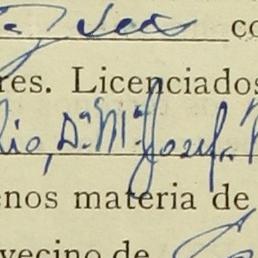 y seis co
res. Licenciados
lio, Dª Mª Josefa
enos materia de
vecino de